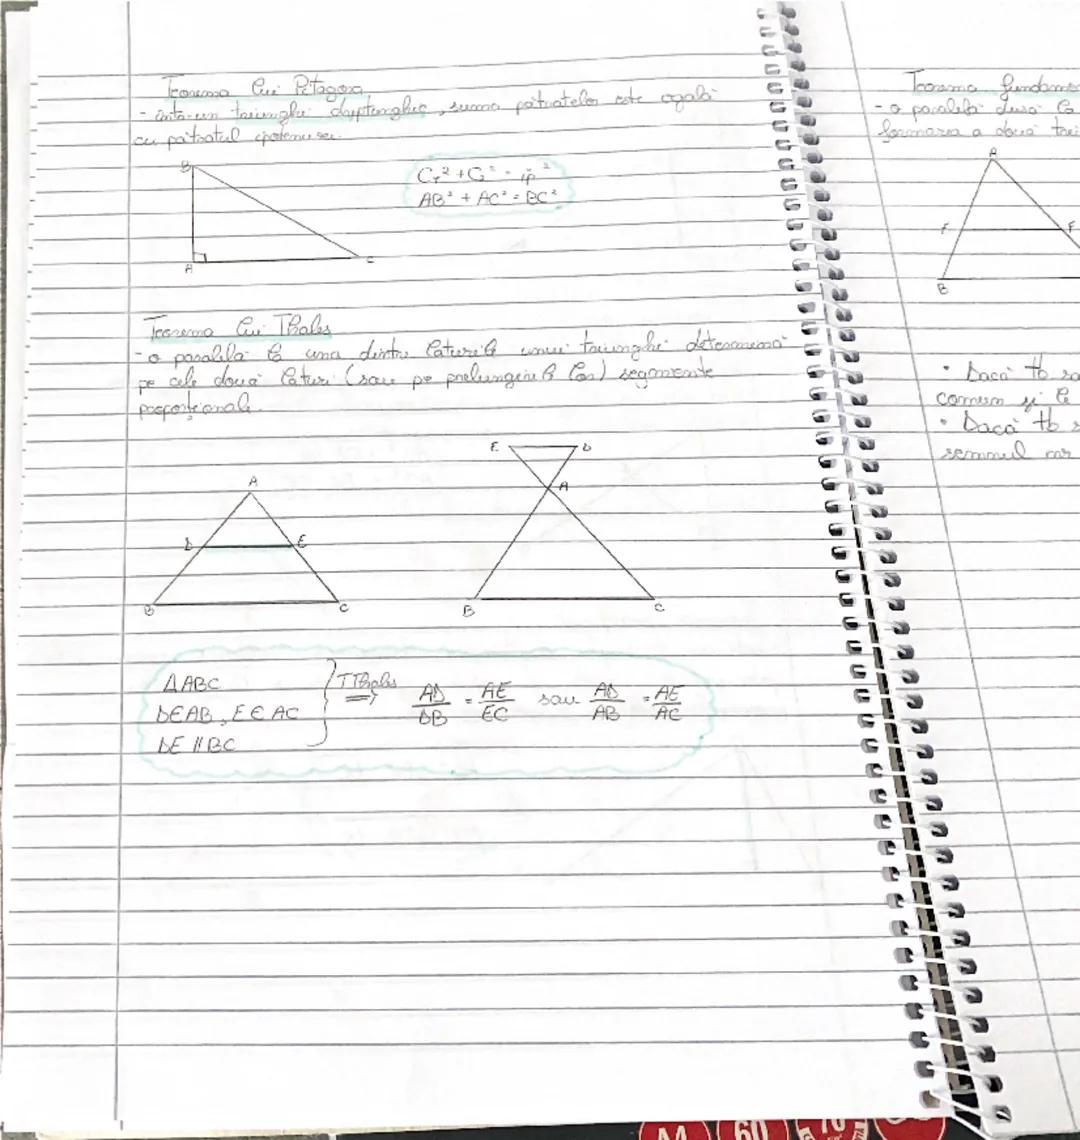 Teorema lui Pitagora
- într-un triunghi dreptunghic, suma pătratelor este egală
cu pătratul ipotenusei.
B
C₁² + C₂² = ip²
AB² + AC² = BC²
A
C
Teorema lui Thales
- o paralelă la una dintre laturile unui triunghi determină
pe cele două laturi (sau pe prelungirile lor) segmente
proporționale.
E D
A
A
D E
B C
B C
ΔABC
D∈AB, E∈AC
DE ∥ BC
T Thales
⇒
AD/DB = AE/EC sau AD/AB = AE/AC
Teorema fundamen
- o paralelă dusă la
formarea a două tri
A
F
B
• Dacă tb
comun și
• Dacă tb
semnul
A4
60
70